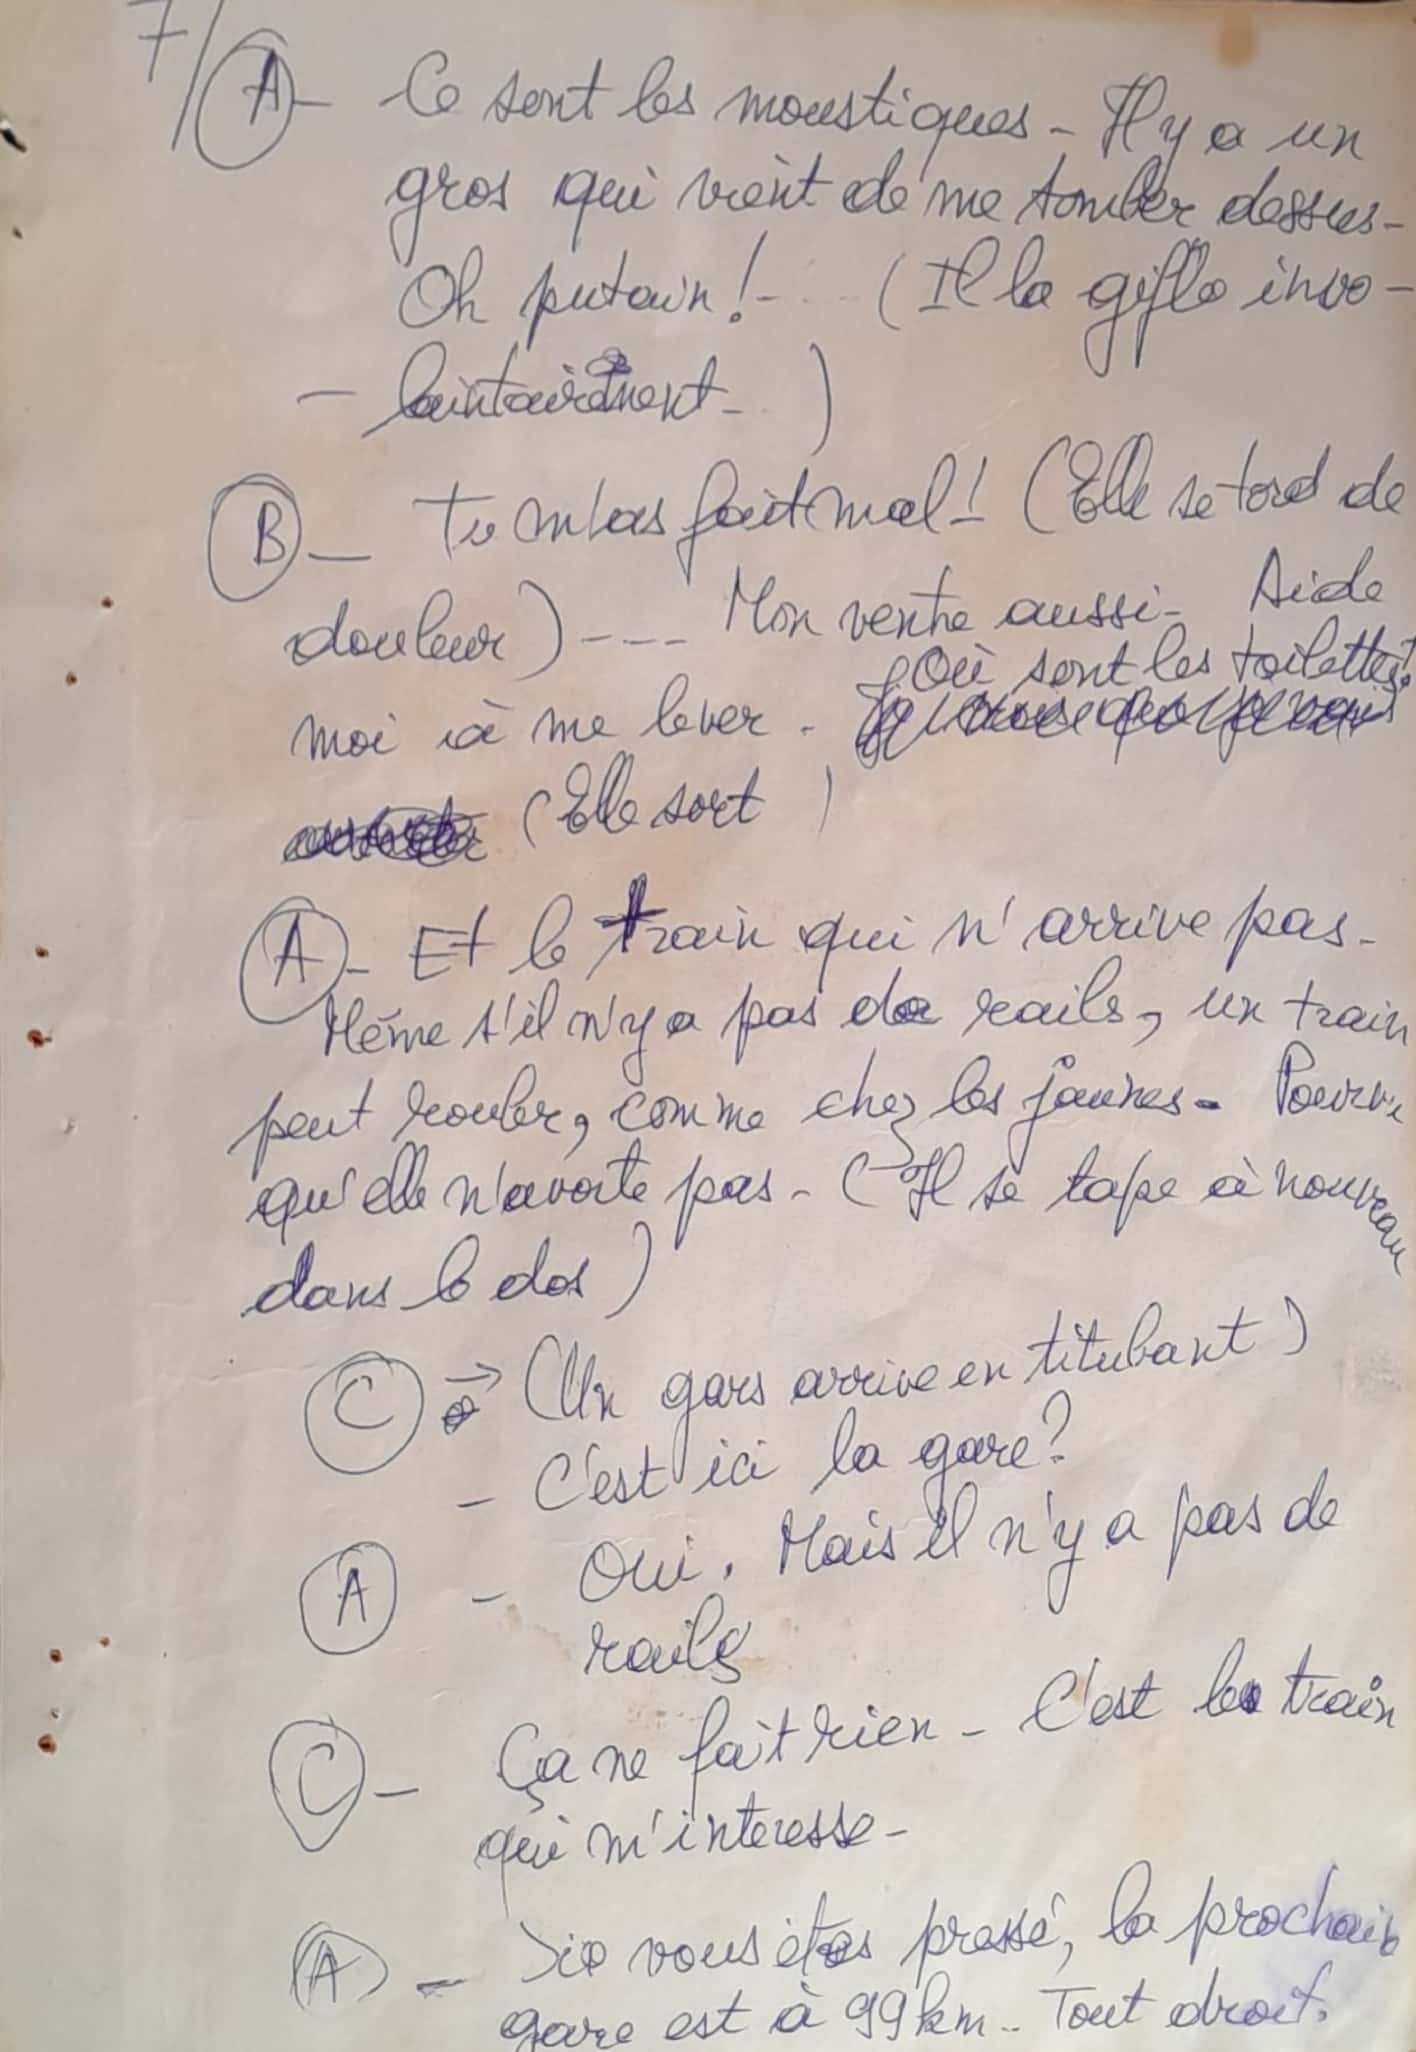 7/ A - Ce sont les moustiques - Il y a un
gros qui vient de me tomber dessus -
Oh putain ! - ... ( Il la gifle invo -
- lontairement - )
B - Tu m'as fait mal ! ( Elle se tord de
douleur ) - - - - Mon ventre aussi - Aide
Où sont les toilettes ?
moi à me lever -
( Elle sort )
A - Et le train qui n'arrive pas -
Même s'il n'y a pas de rails, un train
peut rouler, comme chez les jaunes - Pourvu
qu'elle n'avorte pas - ( Il se tape à nouveau
dans le dos )
C → ( Un gars arrive en titubant )
- C'est ici la gare ?
A - Oui. Mais il n'y a pas de
rails
C - Ça ne fait rien - C'est le train
qui m'interesse -
A - Si vous êtes pressé, la prochaine
gare est à 99 km - Tout droit.